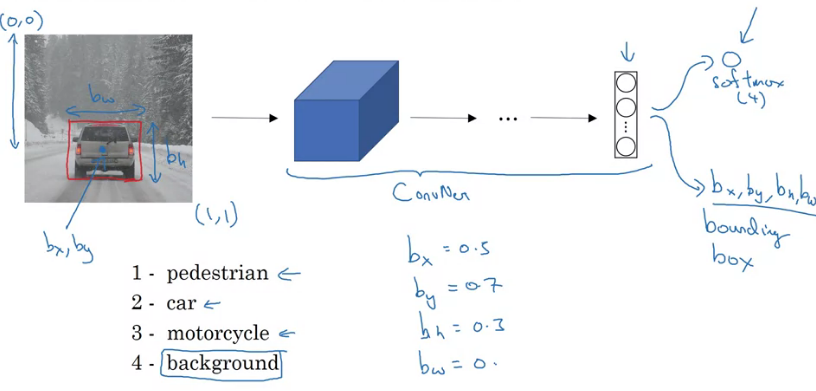 (0,0)
bw
bh
(1,1)
bx, by
...
ConvNet
softmax
(4)
bx, by, bh, bw
bounding
box
1 - pedestrian
2 - car
3 - motorcycle
4 - background
bx = 0.5
by = 0.7
bh = 0.3
bw = 0.